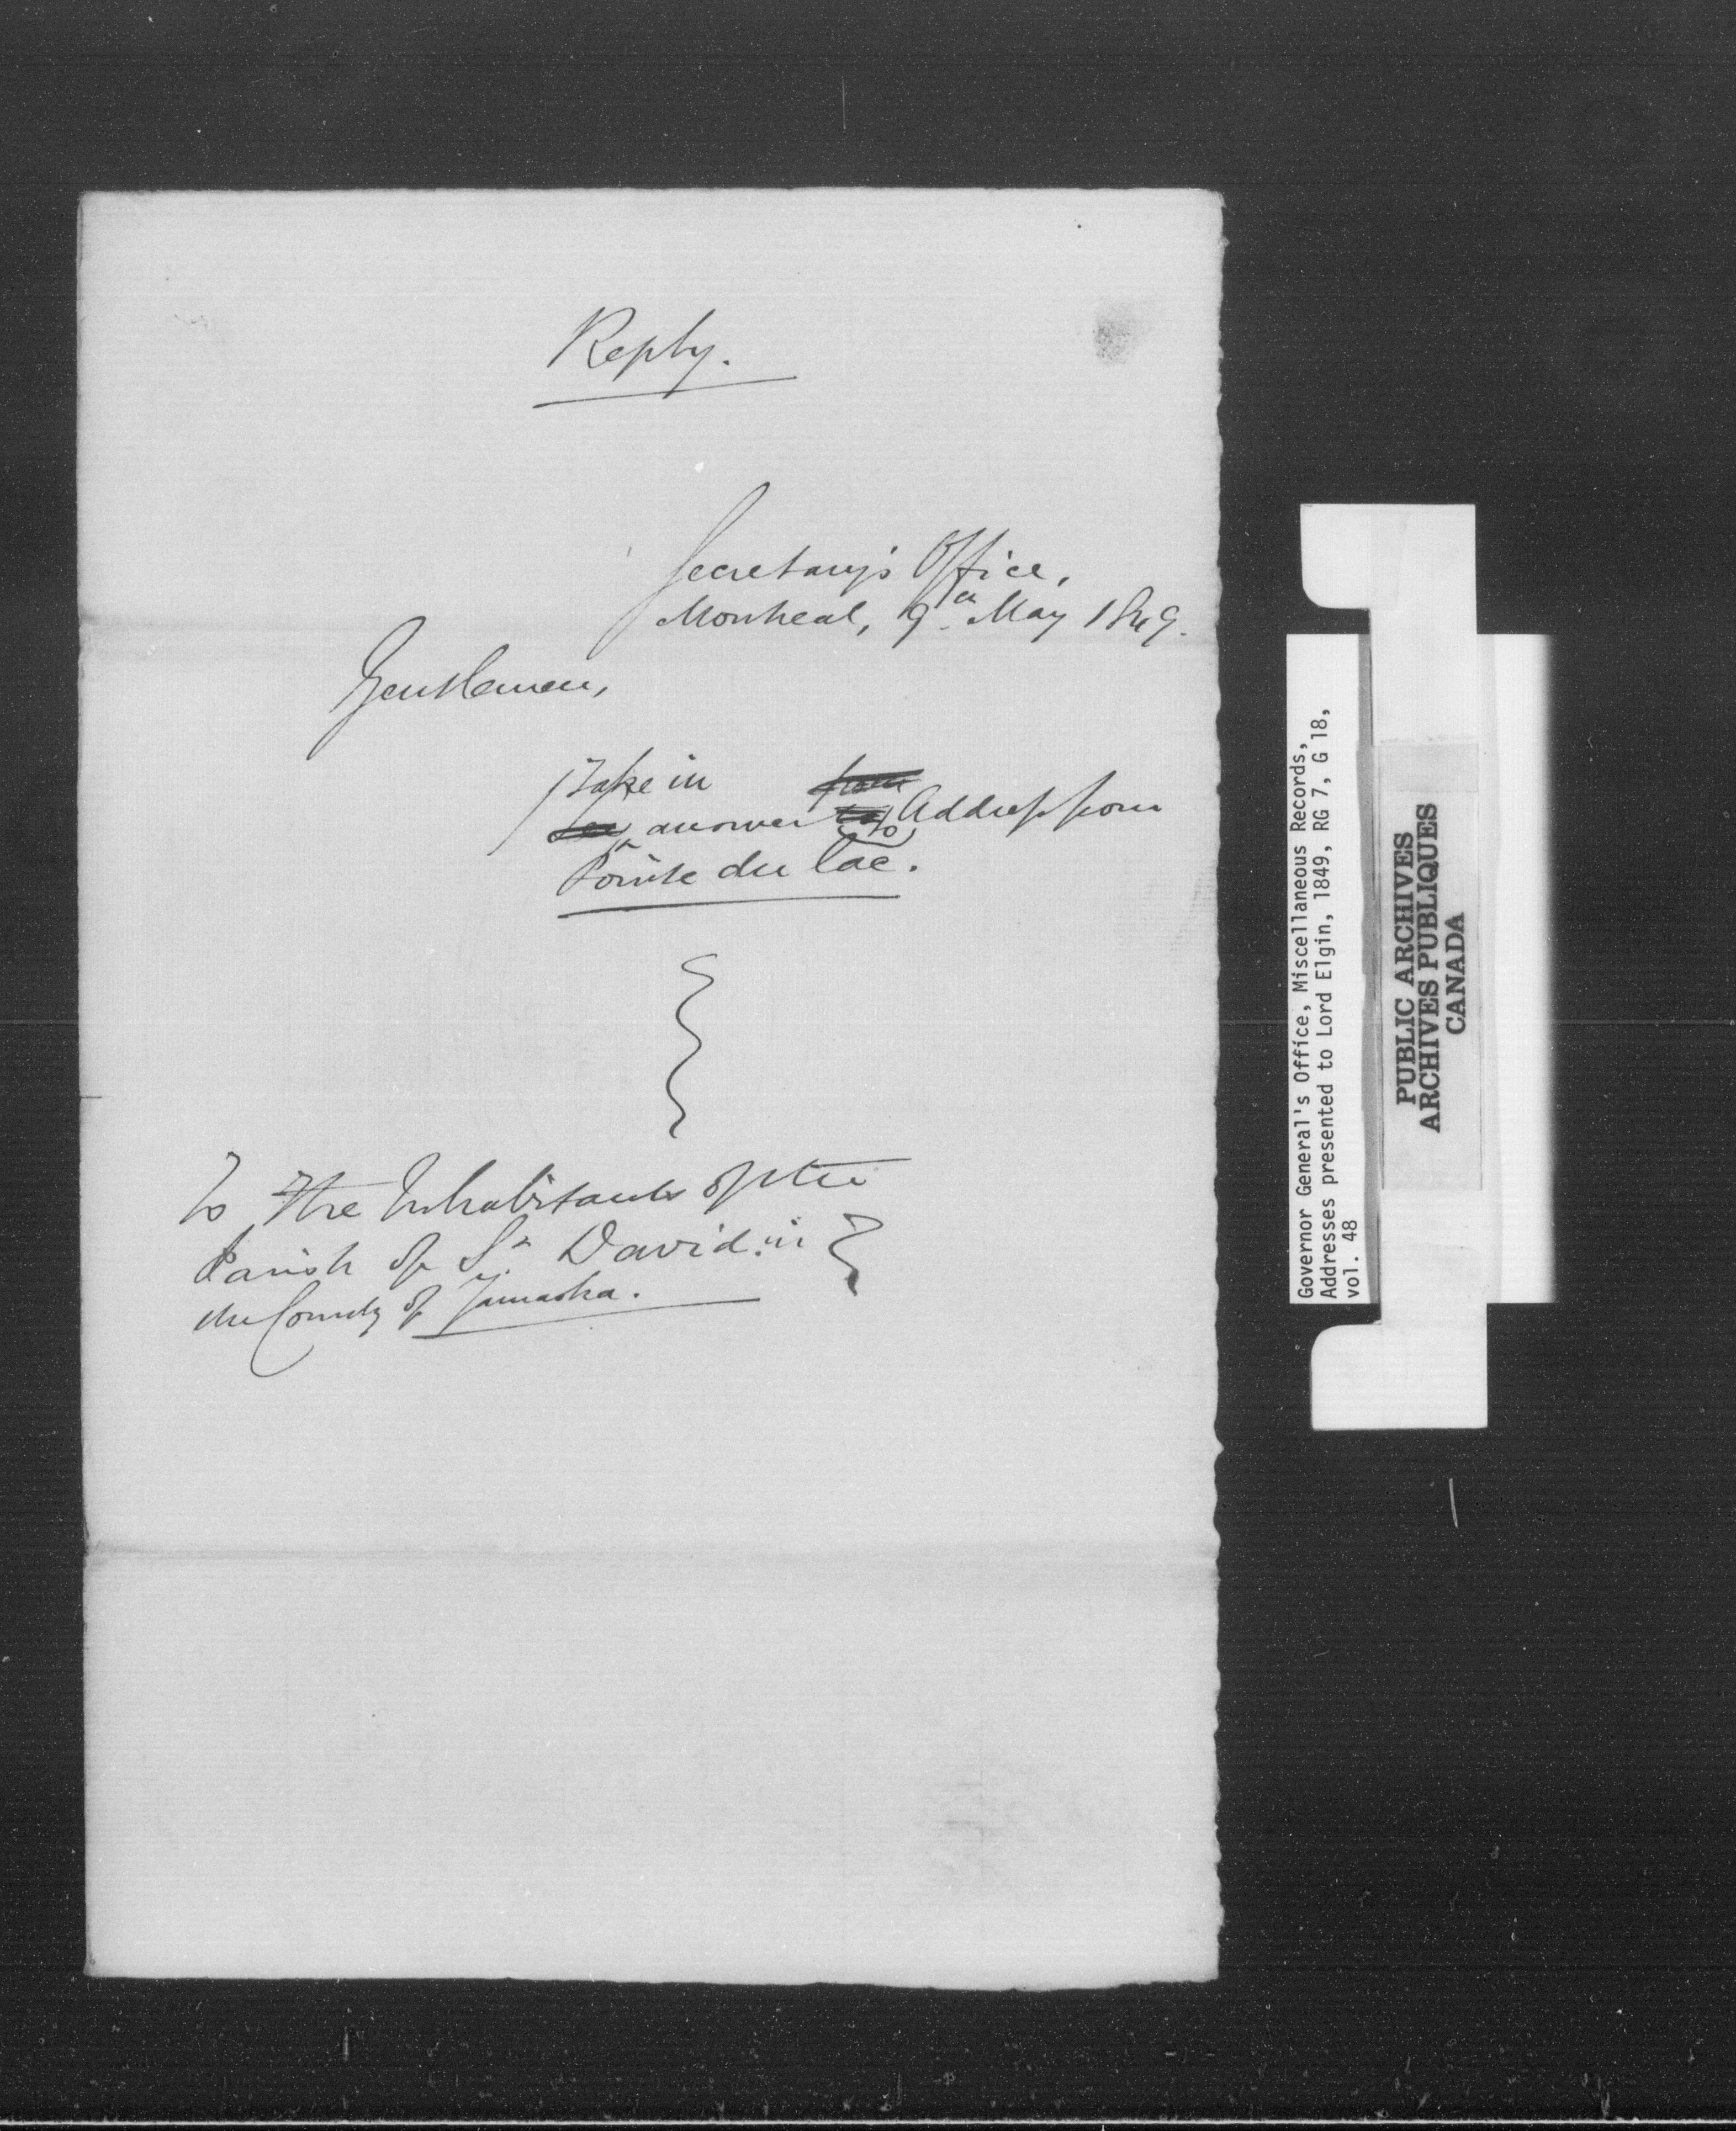 Reply.
Secretary's Office,
Montreal, 9th May 1849.
Gentlemen,
Take in
answer to Address from
Pointe du Lac.
To The Inhabitants of the
Parish of St David in
the County of Yamaska.
Governor General's Office, Miscellaneous Records,
Addresses presented to Lord Elgin, 1849, RG 7, G 18,
vol. 48
PUBLIC ARCHIVES
ARCHIVES PUBLIQUES
CANADA